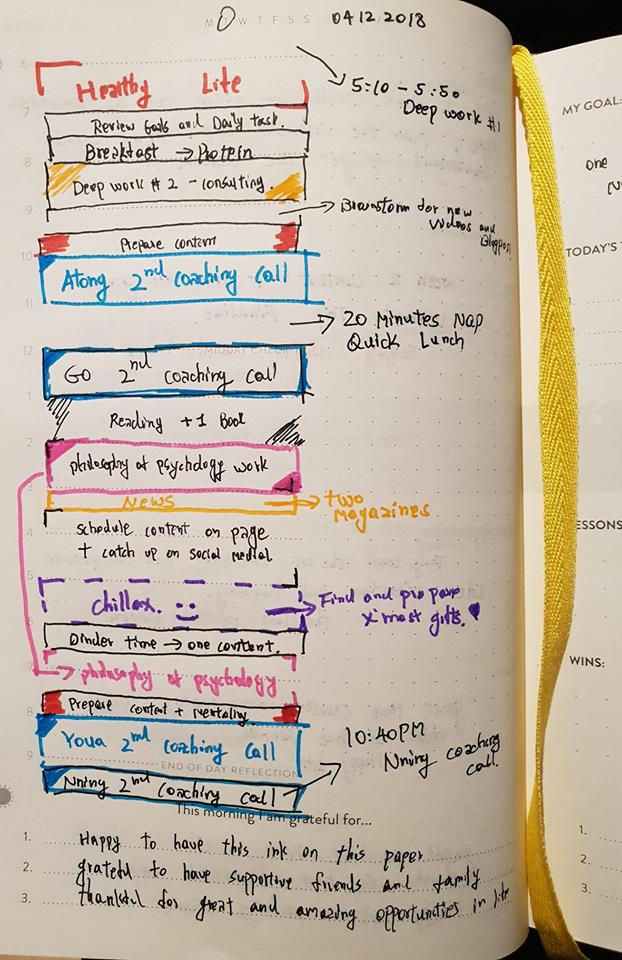 M T W T F S S 04 12 2018
6
Healthy Life
5:10 - 5:50
Deep work #1
7
Review Goals and Daily task.
Breakfast → Protein
8
Deep work # 2 - consulting.
9
Brainstorm for new
Videos and
Blogpost
Prepare content
10
Atong 2nd coaching call
11
20 Minutes Nap
Quick Lunch
12 MIDDAY CHECK
GO 2nd coaching call
1
Reading +1 Book
2
philosophy of psychology work
3
NEWS → two
magazines
4
schedule content on page
+ catch up on social medial
5
chillax. Find and prepare
X'mast gifts.
6
Dinder time → one content.
7
→ philosophy of psychology
8
Prepare content + mentality
Youa 2nd coaching call
10:40PM
Nning coaching
call.
9 END OF DAY REFLECTION
Nning 2nd coaching call
This morning I am grateful for...
1. Happy to have this ink on this paper
2. grateful to have supportive friends and family
3. thankful for great and amazing opportunities in life
MY GOAL:
one
TODAY'S T
1.
2.
3.
ESSONS
WINS:
1.
2.
3.